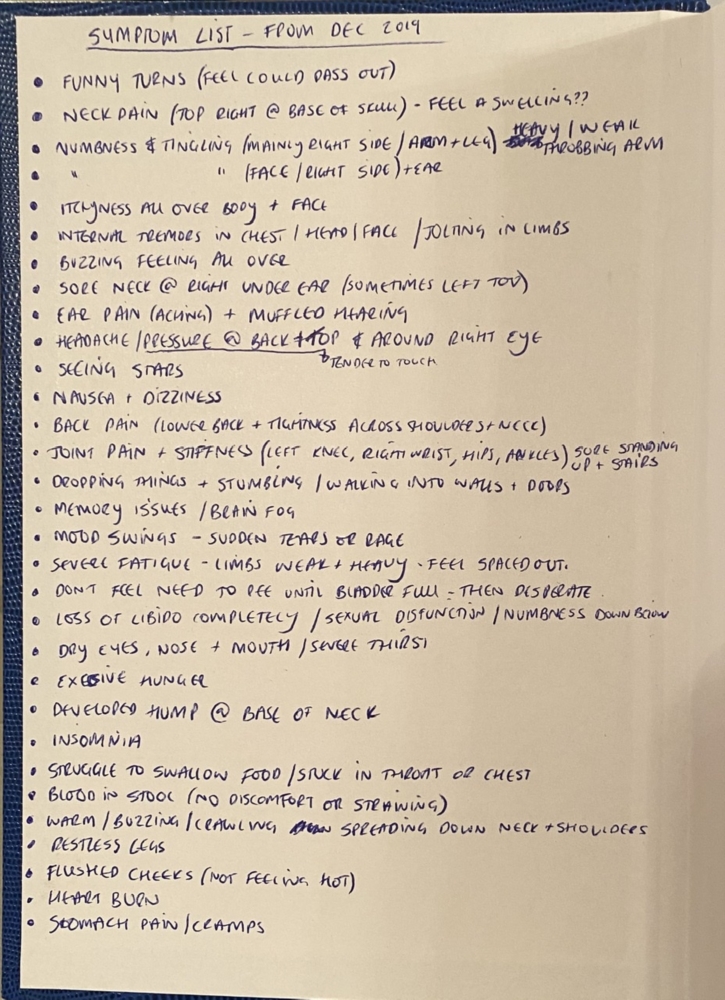 SYMPTOM LIST - FROM DEC 2019
• FUNNY TURNS (FEEL COULD PASS OUT)
• NECK PAIN (TOP RIGHT @ BASE OF SKULL) - FEEL A SWELLING??
• NUMBNESS & TINGLING (MAINLY RIGHT SIDE / ARM + LEG) HEAVY / WEAK
THROBBING ARM
• " " (FACE / RIGHT SIDE) + EAR
• ITCHYNESS ALL OVER BODY + FACE
• INTERNAL TREMORS IN CHEST / HEAD / FACE / JOLTING IN LIMBS
• BUZZING FEELING ALL OVER
• SORE NECK @ RIGHT UNDER EAR (SOMETIMES LEFT TOO)
• EAR PAIN (ACHING) + MUFFLED HEARING
• HEADACHE / PRESSURE @ BACK + TOP & AROUND RIGHT EYE
TENDER TO TOUCH
• SEEING STARS
• NAUSEA + DIZZINESS
• BACK PAIN (LOWER BACK + TIGHTNESS ACROSS SHOULDERS + NECK)
• JOINT PAIN + STIFFNESS (LEFT KNEE, RIGHT WRIST, HIPS, ANKLES) SORE STANDING
UP + STAIRS
• DROPPING THINGS + STUMBLING / WALKING INTO WALLS + DOORS
• MEMORY ISSUES / BRAIN FOG
• MOOD SWINGS - SUDDEN TEARS OR RAGE
• SEVERE FATIGUE - LIMBS WEAK + HEAVY - FEEL SPACED OUT.
• DON'T FEEL NEED TO PEE UNTIL BLADDER FULL - THEN DESPERATE
• LOSS OF LIBIDO COMPLETELY / SEXUAL DISFUNCTION / NUMBNESS DOWN BELOW
• DRY EYES, NOSE + MOUTH / SEVERE THIRST
• EXESSIVE HUNGER
• DEVELOPED HUMP @ BASE OF NECK
• INSOMNIA
• STRUGGLE TO SWALLOW FOOD / STUCK IN THROAT OR CHEST
• BLOOD IN STOOL (NO DISCOMFORT OR STRAINING)
• WARM / BUZZING / CRAWLING SPREADING DOWN NECK + SHOULDERS
• RESTLESS LEGS
• FLUSHED CHEEKS (NOT FEELING HOT)
• HEART BURN
• STOMACH PAIN / CRAMPS